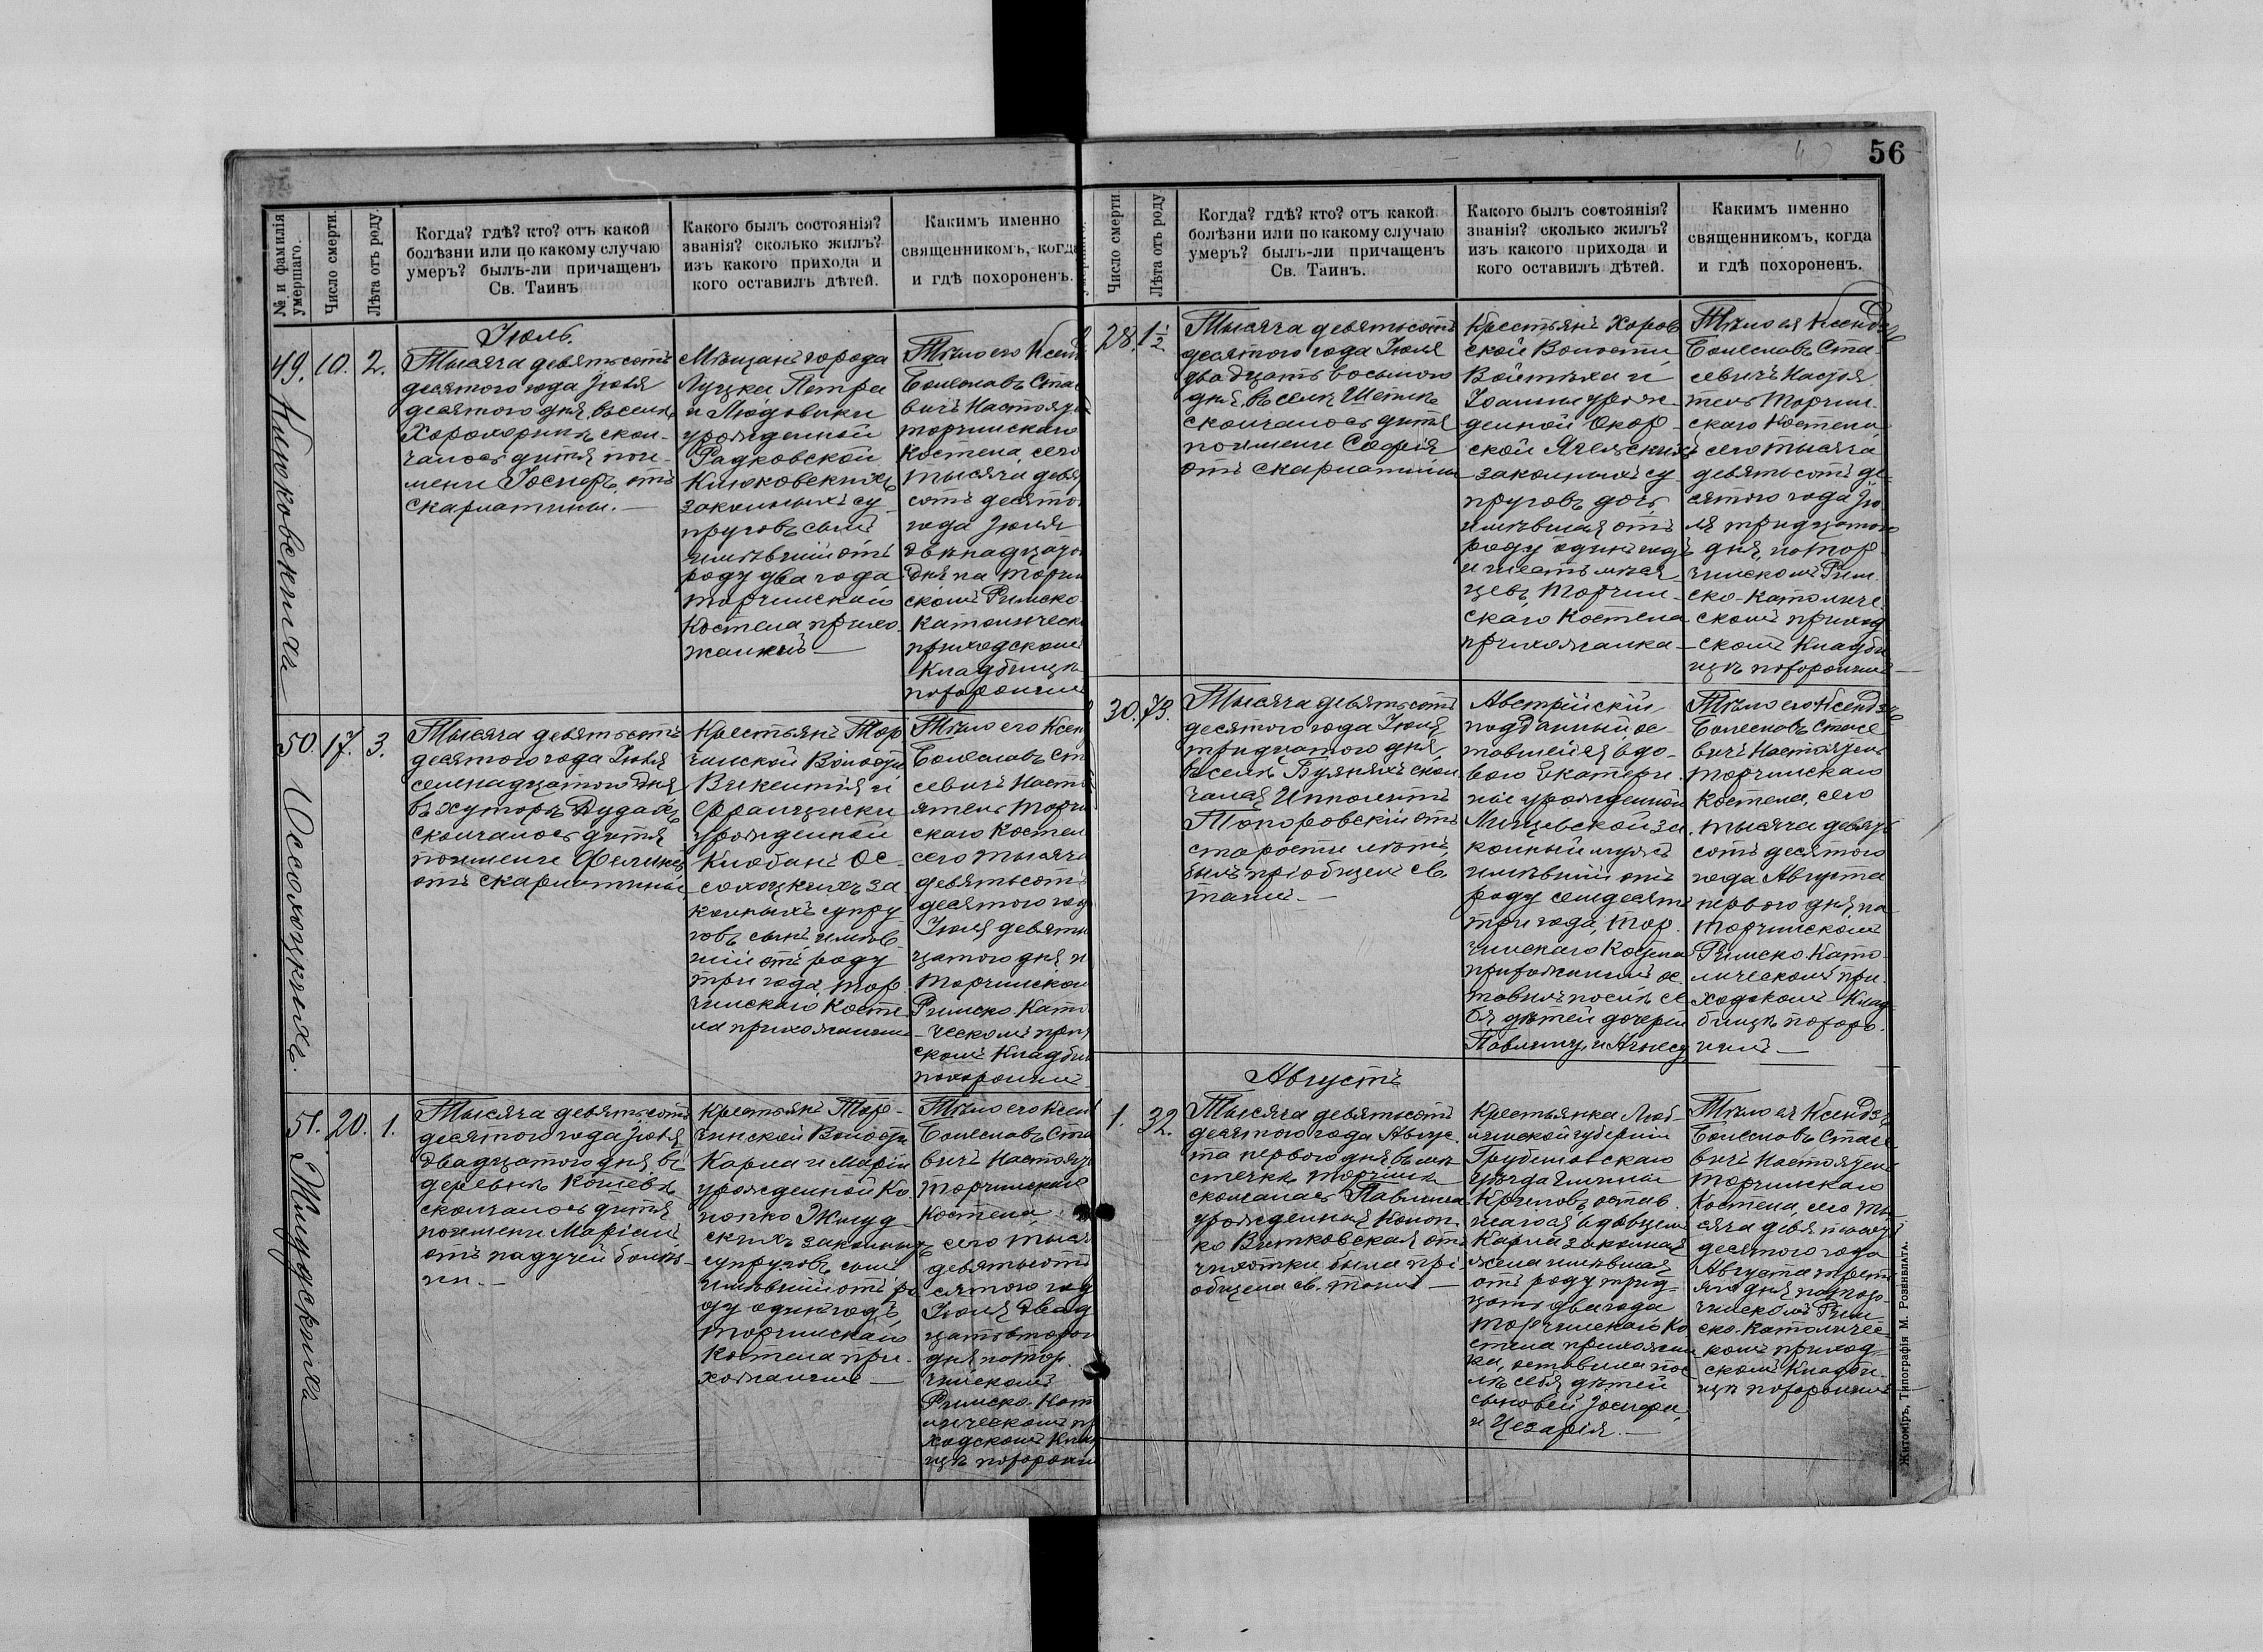 56
№ и фамилія
умершаго.
Число смерти.
Лѣта отъ роду.
Когда? гдѣ? кто? отъ какой
болѣзни или по какому случаю
умеръ? былъ-ли причащенъ
Св. Таинъ
Какого былъ состоянія?
званія? сколько жилъ?
изъ какого прихода и
кого оставилъ дѣтей.
Какимъ именно
священникомъ, когда
и гдѣ похороненъ.
49. Клюковскихъ
10.
2.
Іюль.
Тысяча девятьсотъ
десятого года Іюля
десятого дня, въ селѣ
скон-
чалось дитя по и-
мени Іосифъ, отъ
скарлатины.—
Мѣщанъ города
Луцка Петра
и Людовики
урожденной
Радковской
Клюковскихъ
законныхъ су-
пруговъ сынъ
имѣвшій отъ
роду два года,
Торчинскаго
Костела прихо-
жанинъ—
Тѣло его Ксенд
Болеславъ Ста
вичъ Настоят
Торчинскаго
Костела, сего
тысяча девя
сотъ десято
года Іюля
двѣнадцато
дня на Торчи
скомъ Римско
Католическ
приходскомъ
Кладбищѣ
похоронилъ
50. Осолоцкихъ.
17.
3.
Тысяча девятьсотъ
десятого года Іюля
семнадцатого дня
въ хуторѣ Дудахъ
скончалось дитя
по имени Феликсъ
отъ скарлатины,
Крестьянъ Тор
чинской Волости
Викентія и
Францишки
урожденной
Клобанъ Ос-
солоцкихъ за
конныхъ супру
говъ сынъ, имѣв-
шій отъ роду
три года, Тор
чинскаго Косте
ла прихожанинъ
Тѣло его Ксен
Болеславъ Ст
севичъ Насто
ятель Торчи
скаго Костел
сего тысяча
девятьсотъ
десятого год
Іюля девятн
цатого дня н
Торчинском
Римско Като
ческомъ при
скомъ Кладби
похоронилъ
51. Жмудскихъ
20.
1.
Тысяча девятьсотъ
десятого года Іюля
двадцатого дня, въ
деревнѣ Кошевѣ
скончалось дитя
по имени Маріанъ
отъ падучей болѣз-
ни.—
Крестьянъ Тор-
чинской Волости
Карла и Маріи
урожденной Ко
нопко Жмуд-
скихъ законныхъ
супруговъ сынъ
имѣвшій отъ ро
ду одинъ годъ,
Торчинскаго
Костела при-
хожанинъ—
Тѣло его Ксен
Болеславъ Ста
вичъ Настоят
Торчинскаго
Костела
сего тыся
девятьсотъ
сятого год
Іюля двад
цать второг
дня на Тор
чинскомъ
Римско-Кат
лическомъ пр
ходскомъ Клад
щѣ похорони
Число смерти
Лѣта отъ роду
Когда? гдѣ? кто? отъ какой
болѣзни или по какому случаю
умеръ? былъ-ли причащенъ
Св. Таинъ.
Какого былъ состоянія?
званія? сколько жилъ?
изъ какого прихода и
кого оставилъ дѣтей.
Какимъ именно
священникомъ, когда
и гдѣ похороненъ.
28.
1½
Тысяча девятьсотъ
десятого года Іюля
двадцать восьмого
дня, въ селѣ
скончалось дитя
по имени Софія
отъ скарлатины
Крестьянъ Хоров
ской Волости,
Войтѣха и
Іоанны урож-
денной
законныхъ су
пруговъ дочь,
имѣвшая отъ
роду одинъ годъ
и шесть мѣся
цевъ, Торчин-
скаго Костела
прихожанка—
Тѣло ея Ксендзъ
Болеславъ Ста-
севичъ Настоя
тель Торчин-
скаго Костела
сего тысяча
девятьсотъ де-
сятого года Ію
ля тридцатого
дня, на Тор-
чинскомъ Рим-
ско-Католиче
скомъ приход
скомъ Кладби
щѣ похоронилъ—
30.
73.
Тысяча девятьсотъ
десятого года Іюля
тридцатого дня,
въ селѣ Буянахъ скон
чался Ипполитъ
Топоровскій отъ
старости лѣтъ,
былъ пріобщенъ св.
таинъ.—
Австрійскій
подданный, ос
тавшейся вдо-
вою Екатери-
ны урожденной
за
конный мужъ
имѣвшій отъ
роду семдесятъ
три года, Тор
чинскаго Костела
прихожанинъ ос
тавилъ послѣ се
бя дѣтей дочерей
Павлину, и Агнесу
Тѣло его Ксендзъ
Болеславъ Стасе
вичъ Настоятель
Торчинскаго
Костела, сего
тысяча девять
сотъ десятого
года Августа
первого дня, на
Торчинскомъ
Римско-Като
лическомъ при
ходскомъ Клад
бищѣ похоро-
нилъ—
Августъ
1.
32.
Тысяча девятьсотъ
десятого года Авгус-
та первого дня въ мѣ
стечкѣ Торчинѣ
скончалась Павлина
урожденная Коноп
ко Витковская отъ
чахотки была прі
общена св. таинъ—
Крестьянка Люб-
линской губерніи
Грубешовскаго
уѣзда гмины
Крыловъ, остав
шагося вдовцемъ
Карла законная
жена имѣвшая
отъ роду трид-
цать два года
Торчинскаго Ко
стела прихожан
ка, оставила пос
лѣ себя дѣтей
сыновей Іосифа,
и Цезарія.—
Тѣло ея Ксендзъ
Болеславъ Стасе
вичъ Настоятель
Торчинскаго
Костела, сего ты
сяча девятьсотъ
десятого года
Августа треть
яго дня, на Тор-
чинскомъ Рим
ско-Католичес-
комъ приход-
скомъ Кладби-
щѣ похоронилъ
Житоміръ, Типографія М. Розенблата.